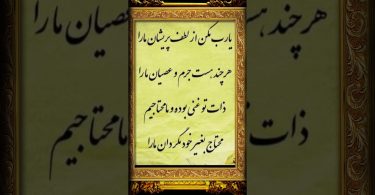 یا رب مکن از لطف پریشان ما را
هر چند هست جرم و عصیان ما را
ذات تو غنی بوده و ما محتاجیم
محتاج بغیر خود مگردان ما را